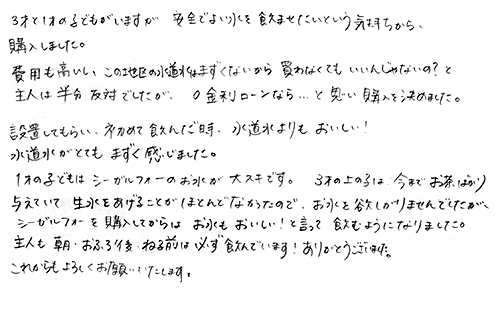 3才と1才の子どもがいますが 安全でよい水を飲ませたいという気持ちから、
購入しました。
費用も高いし、この地区の水道水はまずくないから 買わなくても いいんじゃないの?と
主人は半分反対でしたが、0金利ローンなら…と 思い 購入を決めました。
設置してもらい、初めて飲んだ時、水道水よりも おいしい!
水道水がとても まずく 感じました。
1才の子どもは シーガルフォーのお水が 大スキです。 3才の上の子は、今まで お茶ばかり
与えていて 生水をあげることが ほとんどなかったので、お水を欲しがりませんでしたが、
シーガルフォーを購入してからは お水も おいしい!と言って 飲むようになりました。
主人も 朝・おふろ後・ねる前は 必ず飲んでいます! ありがとうございました。
これからも よろしくお願いいたします。